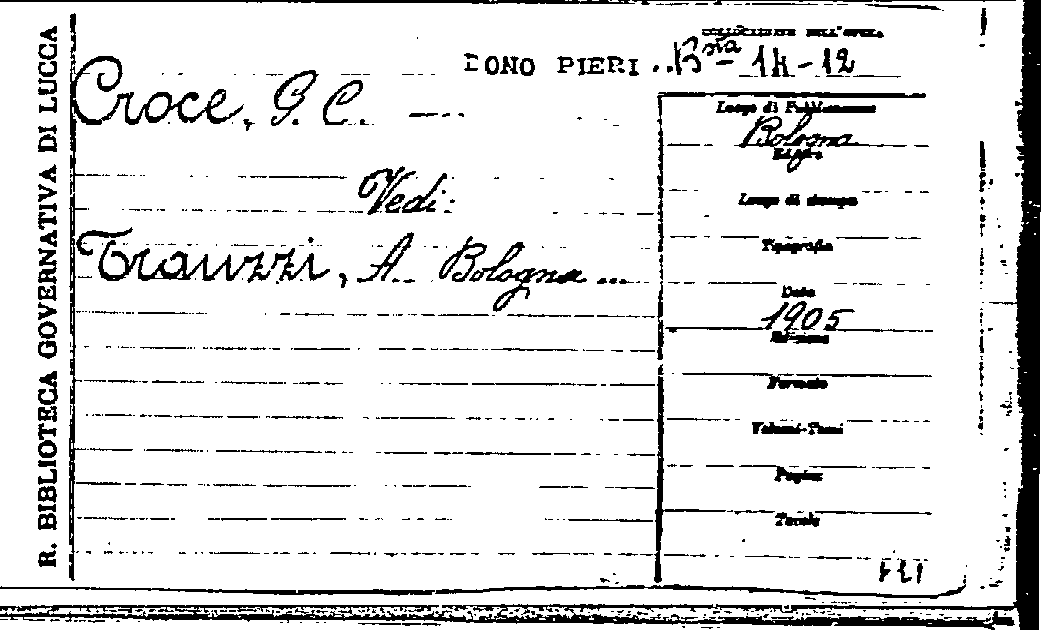 R. BIBLIOTECA GOVERNATIVA DI LUCCA
COLLOCAZIONE DELL'OPERA
DONO PIERI . Bsta - 14 - 12
Croce, G. C. —
Vedi:
Trauzzi, A. Bologna ...
Luogo di Pubblicazione
Bologna
Editore
Luogo di stampa
Tipografia
Data
1905
Edizione
Formato
Volumi-Tomi
Pagine
Tavole